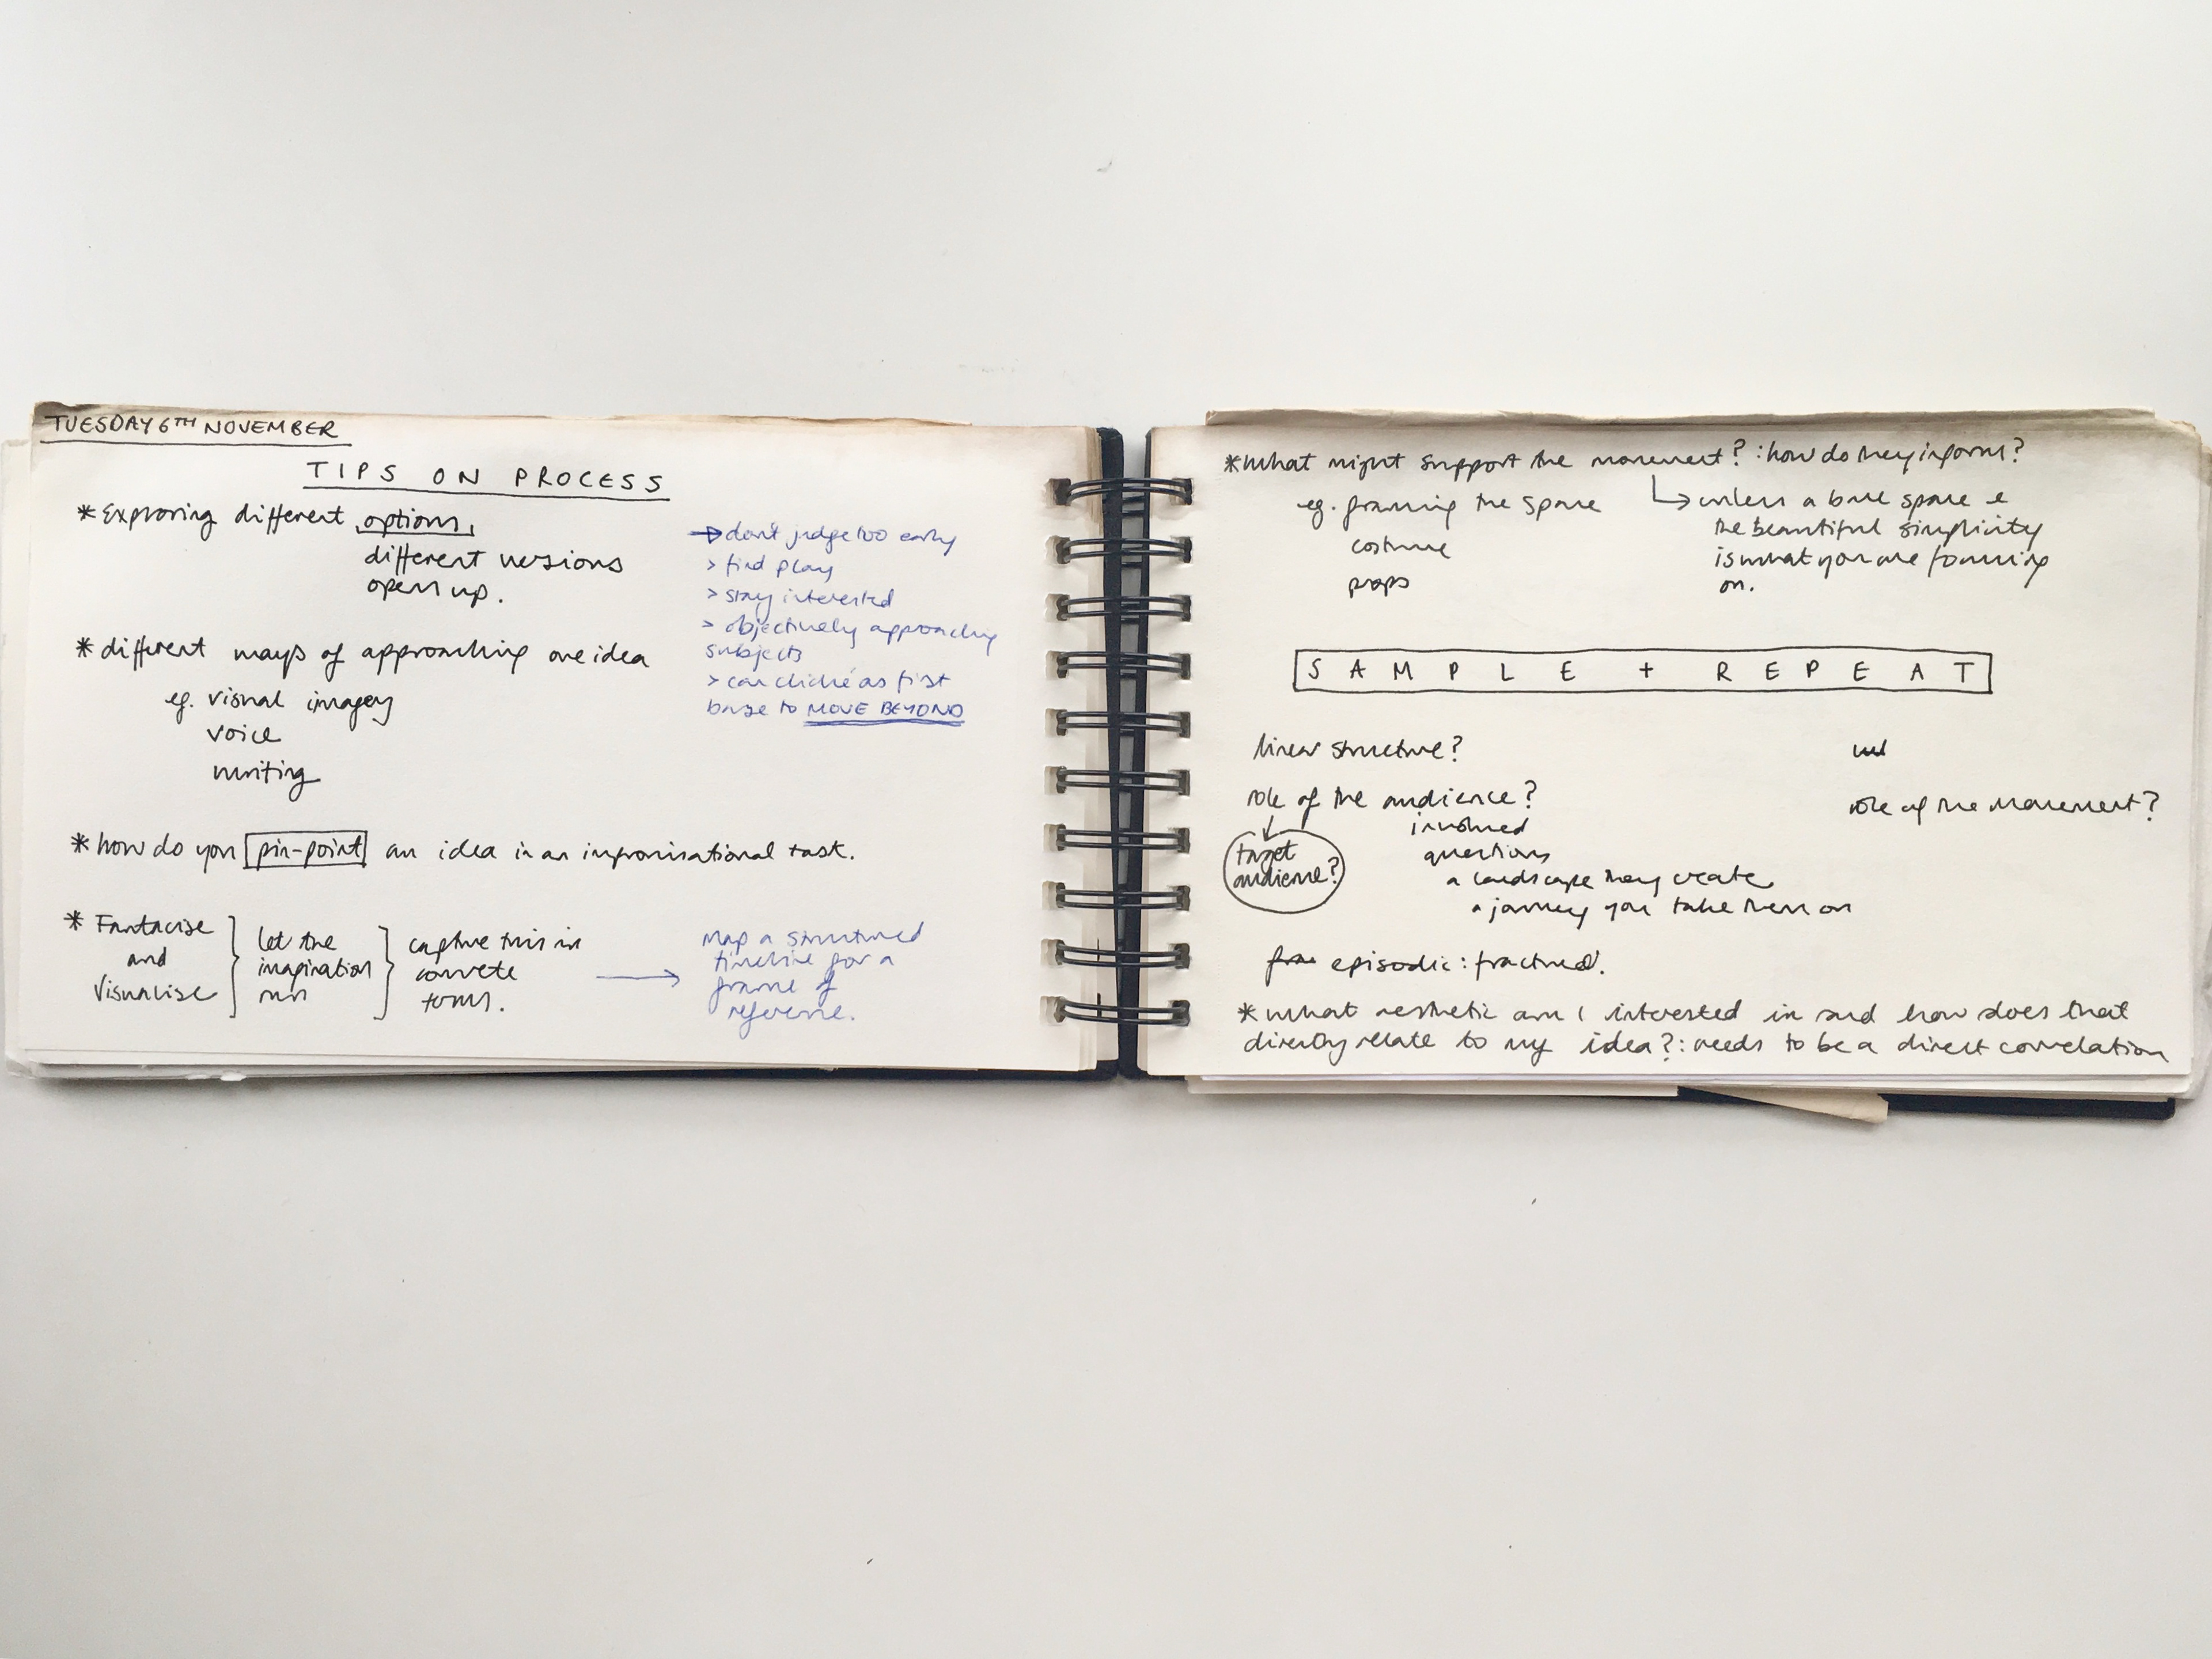 TUESDAY 6TH NOVEMBER
TIPS ON PROCESS
*Exploring different options,
different versions
open up.
→don't judge too early
> find play
> stay interested
> objectively approaching
subjects
> can cliché as first
base to MOVE BEYOND
*different ways of approaching one idea
eg. visual imagery
voice
writing
*how do you pin-point an idea in an improvisational task.
* Fantacise
and
Visualise
let the
imagination
run
capture this in
concrete
forms.
map a structured
timeline for a
frame of
reference.
*What might support the movement? : how do they inform?
eg. framing the space
costume
props
unless a bare space &
the beautiful simplicity
is what you are focusing
on.
SAMPLE + REPEAT
linear structure?
role of the audience?
target
audience?
involved
questions
a landscape they create
a journey you take them on
role of the movement?
episodic : fractured.
*What aesthetic am I interested in and how does that
directly relate to my idea? : needs to be a direct correlation